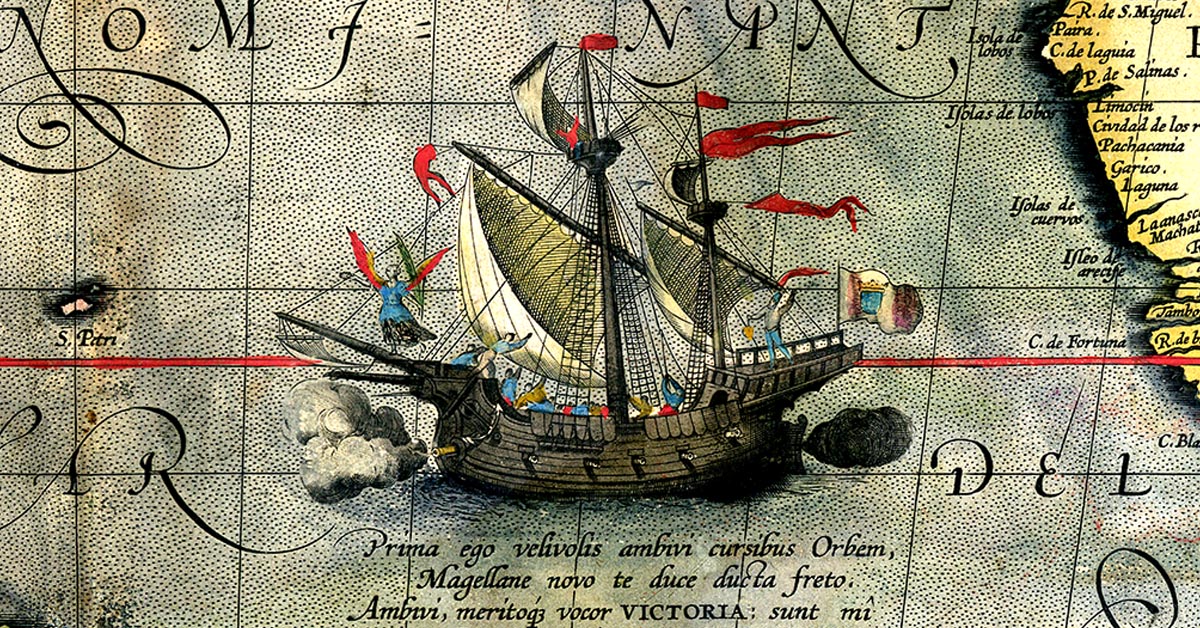 NOMI = NANT
Isola de
lobos
R. de S. Miguel.
Paira.
C. de laguia
P. de Salinas.
Isolas de lobos
Limocin
Cividad de los r
Pachacania
Garico.
Laguna
Isolas de
cuervos
Isleo de
arecife
S. Petri
C. de Fortuna
R. de b
C. Bla
AR DEL
Prima ego velivolis ambivi cursibus Orbem,
Magellane novo te duce ducta freto.
Ambivi, meritoq3 vocor VICTORIA: sunt mî